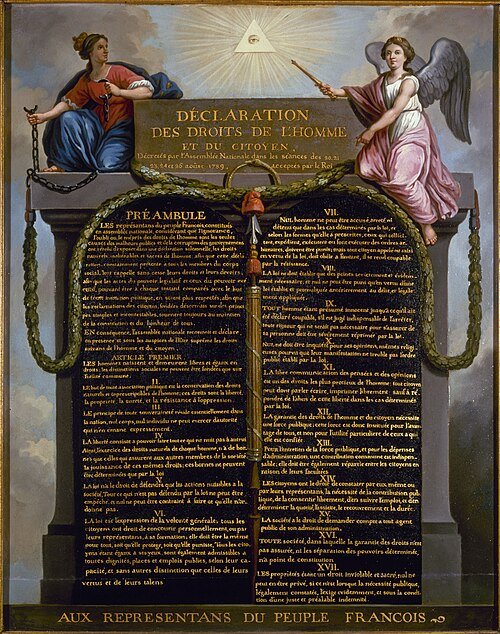 DÉCLARATION
DES DROITS DE L'HOMME
ET DU CITOYEN,
Décrétés par l'Assemblée Nationale dans les séances des 20, 21
23, 24 et 26 août 1789, Acceptés par le Roi
PRÉAMBULE
LES représentans du peuple Francois, constitués
en assemblée nationale, considérant que l'ignorance,
l'oubli ou le mépris des droits de l'homme sont les seules
causes des malheurs publics et de la corruption des gouvernemens
ont résolu d'exposer dans une déclaration solemnelle, les droits
naturels, inaliénables et sacrés de l'homme; afin que cette décla-
ration, constamment présente à tous les membres du corps
social, leur rappelle sans cesse leurs droits et leurs devoirs;
afin que les actes du pouvoir législatif et ceux du pouvoir exé-
cutif, pouvant être à chaque instant comparés avec le but
de toute institution politique, en soient plus respectés; afin que
les réclamations des citoyens, fondées désormais sur des prin-
cipes simples et incontestables, tournent toujours au maintien
de la constitution et du bonheur de tous.
EN conséquence, l'assemblée nationale reconnoit et déclare,
en présence et sous les auspices de l'Etre suprême les droits
suivans de l'homme et du citoyen.
ARTICLE PREMIER.
LES hommes naissent et demeurent libres et égaux en
droits; les distinctions sociales ne peuvent être fondées que sur
l'utilité commune.
II.
LE but de toute association politique est la conservation des droits
naturels et imprescriptibles de l'homme; ces droits sont la liberté,
la propriété, la sureté, et la résistance à l'oppression.
III.
LE principe de toute souveraineté réside essentiellement dans
la nation, nul corps, nul individu ne peut exercer d'autorité
qui n'en émane expressément.
IV.
LA liberté consiste à pouvoir faire tout ce qui ne nuit pas à autrui
Ainsi, l'exercice des droits naturels de chaque homme, n'a de bor-
nes que celles qui assurent aux autres membres de la société
la jouissance de ces mêmes droits; ces bornes ne peuvent
être déterminées que par la loi
V.
LA loi n'a le droit de défendre que les actions nuisibles à la
société. Tout ce qui n'est pas défendu par la loi ne peut être
empêché, et nul ne peut être contraint à faire ce qu'elle n'or-
donne pas.
VI.
LA loi est l'expression de la volonté générale; tous les
citoyens ont droit de concourir personnellement, ou par
leurs représentans, à sa formation; elle doit être la même
pour tous, soit qu'elle protege, soit qu'elle punisse. Tous les cito-
yens étant égaux à ses yeux, sont également admissibles à
toutes dignités, places et emplois publics, selon leur ca-
pacité, et sans autres distinction que celles de leurs
vertus et de leurs talens
VII.
NUL homme ne peut être accusé, arrêté, ni
détenu que dans les cas déterminés par la loi, et
selon les formes qu'elle a prescrites, ceux qui sollici-
tent, expédient, exécutent ou font exécuter des ordres ar-
bitraires, doivent être punis; mais tout citoyen appelé ou saisi
en vertu de la loi, doit obéir à l'instant, il se rend coupable
par la résistance.
VIII.
LA loi ne doit établir que des peines strictement et évidem-
ment nécessaire, et nul ne peut être puni qu'en vertu d'une
loi établie et promulguée antérieurement au délit, et légale-
ment appliquée.
IX.
TOUT homme étant présumé innocent jusqu'à ce qu'il ait
été déclaré coupable, s'il est jugé indispensable de l'arrêter,
toute rigueur qui ne serait pas nécessaire pour s'assurer de
sa personne doit être sévèrement réprimée par la loi.
X.
NUL ne doit être inquiété pour ses opinions, mêmes religi-
euses pourvu que leur manifestation ne trouble pas l'ordre
public établi par la loi.
XI.
LA libre communication des pensées et des opinions
est un des droits les plus précieux de l'homme; tout citoyen
peut donc parler écrire, imprimer librement: sauf à ré-
pondre de l'abus de cette liberté dans les cas déterminés
par la loi.
XII.
LA garantie des droits de l'homme et du citoyen nécessite
une force publique; cette force est donc instituée pour l'avan-
tage de tous, et non pour l'utilité particuliere de ceux à qui
elle est confiée.
XIII.
POUR l'entretien de la force publique, et pour les dépenses
d'administration, une contribution commune est indispen-
sable; elle doit être également répartie entre les citoyens en
raison de leurs facultées.
XIV.
LES citoyens ont le droit de constater par eux même ou
par leurs représentans, la nécessité de la contribution pub-
lique, de la consentir librement, d'en suivre l'emploi, et d'en
déterminer la quotité, l'assiette, le recouvrement et la durée.
XV.
LA société a le droit de demander compte à tout agent
public de son administration.
XVI.
TOUTE société, dans laquelle la garantie des droits n'est
pas assurée, ni les séparation des pouvoirs déterminée,
n'a point de constitution.
XVII.
LES propriétés étant un droit inviolable et sacré, nul ne
peut en être privé, si ce n'est lorsque la nécessité publique,
légalement constatée, l'exige évidemment, et sous la condi-
tion d'une juste et préalable indemnité.
AUX REPRESENTANS DU PEUPLE FRANCOIS